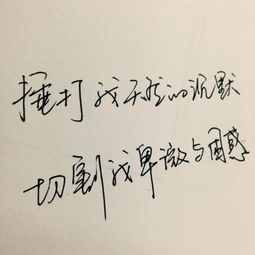 捶打我天然的沉默
切割我卑微与困惑